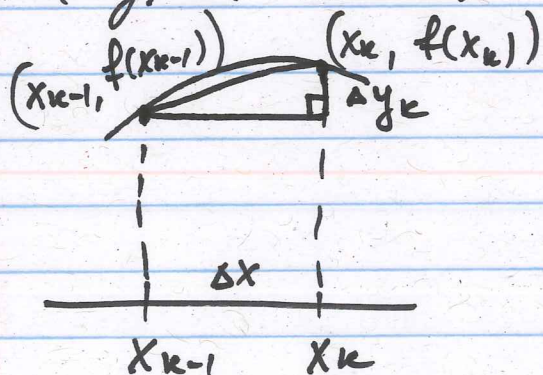 (xₖ₋₁, f(xₖ₋₁))
(xₖ, f(xₖ))
Δyₖ
Δx
xₖ₋₁ xₖ